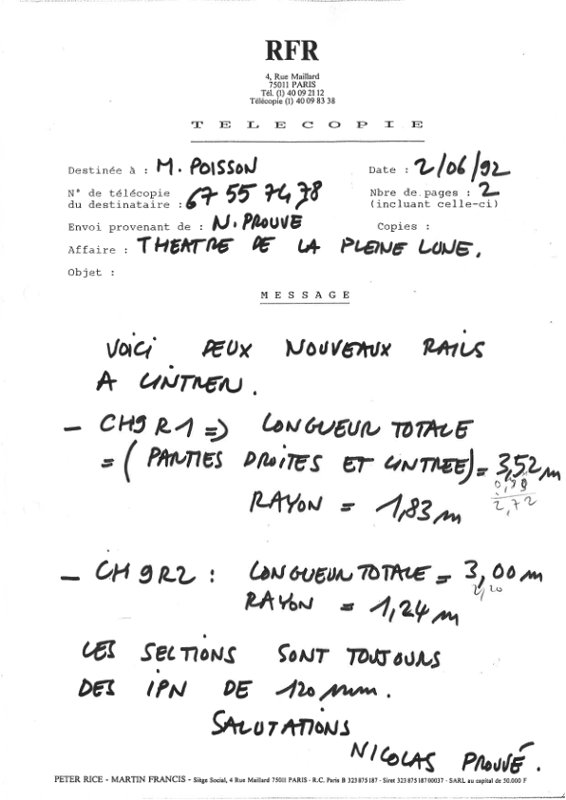 RFR
4, Rue Maillard
75011 PARIS
Tél. (1) 40 09 21 12
Télécopie (1) 40 09 83 38
TELECOPIE
Destinée à : M. POISSON
Date : 2/06/92
N° de télécopie
du destinataire : 67 55 74 78
Nbre de pages : 2
(incluant celle-ci)
Envoi provenant de : N. PROUVE
Copies :
Affaire : THEATRE DE LA PLEINE LUNE.
Objet :
MESSAGE
VOICI DEUX NOUVEAUX RAILS
A CINTRER.
- CH9 R1 => LONGUEUR TOTALE
= (PARTIES DROITES ET CINTREE) = 3,52 m
2,72
RAYON = 1,83 m
- CH 9R2 : LONGUEUR TOTALE = 3,00 m
2,20
RAYON = 1,24 m
LES SECTIONS SONT TOUJOURS
DES IPN DE 120 mm.
SALUTATIONS
NICOLAS PROUVÉ.
PETER RICE - MARTIN FRANCIS - Siège Social, 4 Rue Maillard 75011 PARIS - R.C. Paris B 323 875 187 - Siret 323 875 187 00037 - SARL au capital de 50.000 F